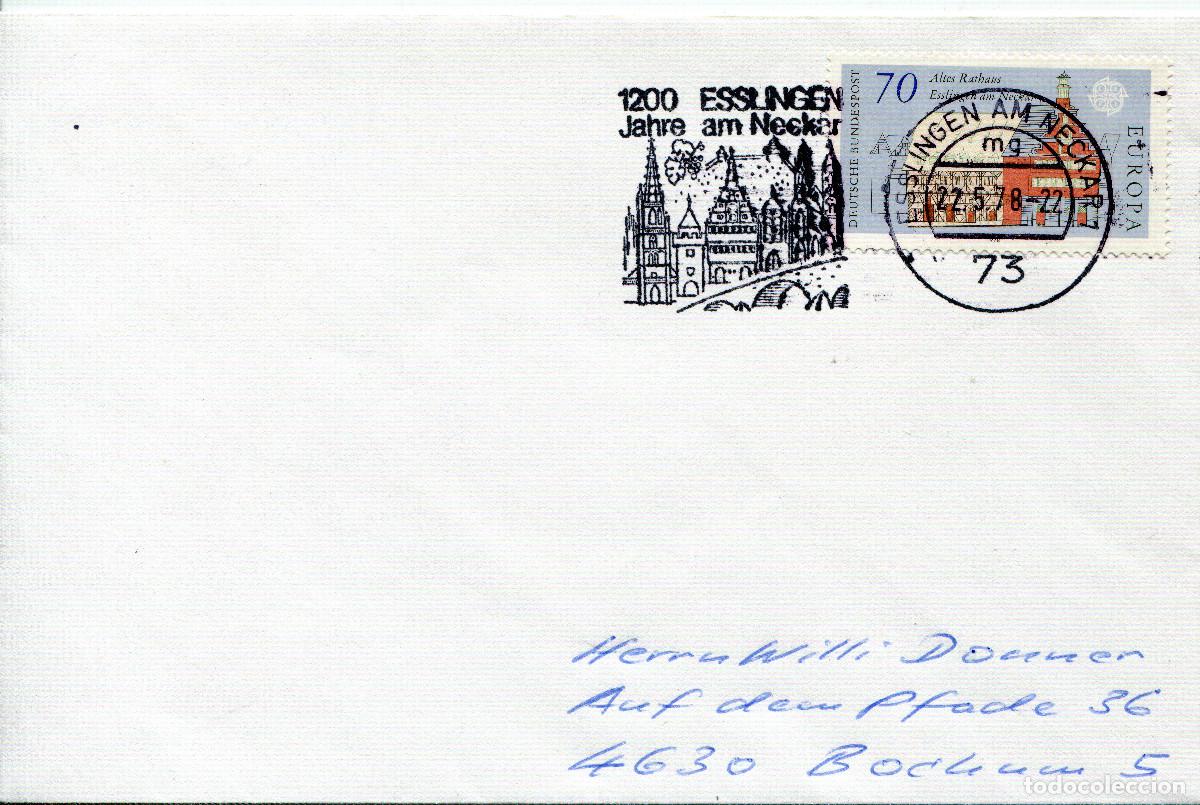 1200 ESSLINGEN
Jahre am Neckar
70
Altes Rathaus
Esslingen am Neckar
DEUTSCHE BUNDESPOST
EUROPA
ESSLINGEN AM NECKAR 7
mg
22.5.78-22
73
Herrn Willi Donner
Auf dem Pfade 36
4630 Bochum 5
todocoleccion